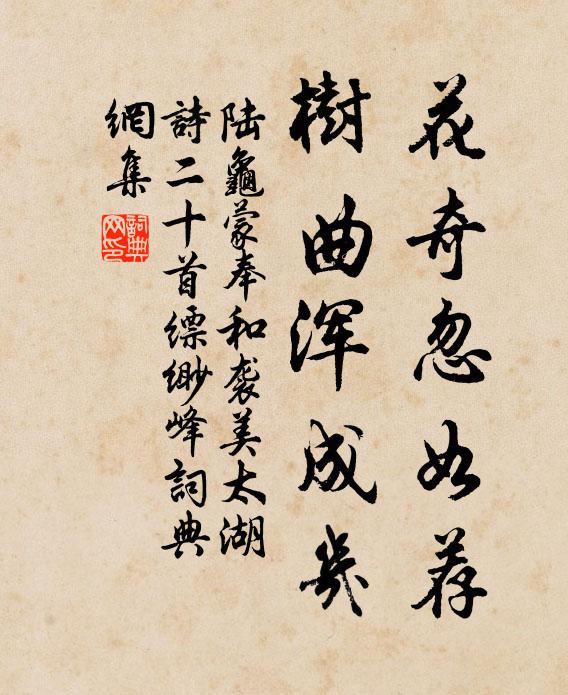 花奇忽如荐
樹曲浑成几
陆龜蒙奉和袭美太湖
詩二十首缥缈峰詞典
網集
詞典网印